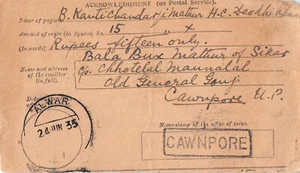 ACKNOWLEDGMENT (on Postal Service).
Payee of money order
B. Kanti Chandar Mathur H.C.
Amount of order (in figures) Rs. 15
(In words) Rupees fifteen only.
Name and address of the remitter (in full).
Bala Bux Mathur of Sikar
c/o Chhotelal Mannalal
Old General Gunj
Cawnpore U.P.
ALWAR
24 JUN 35
Name-stamp of the office of issue.
CAWNPORE